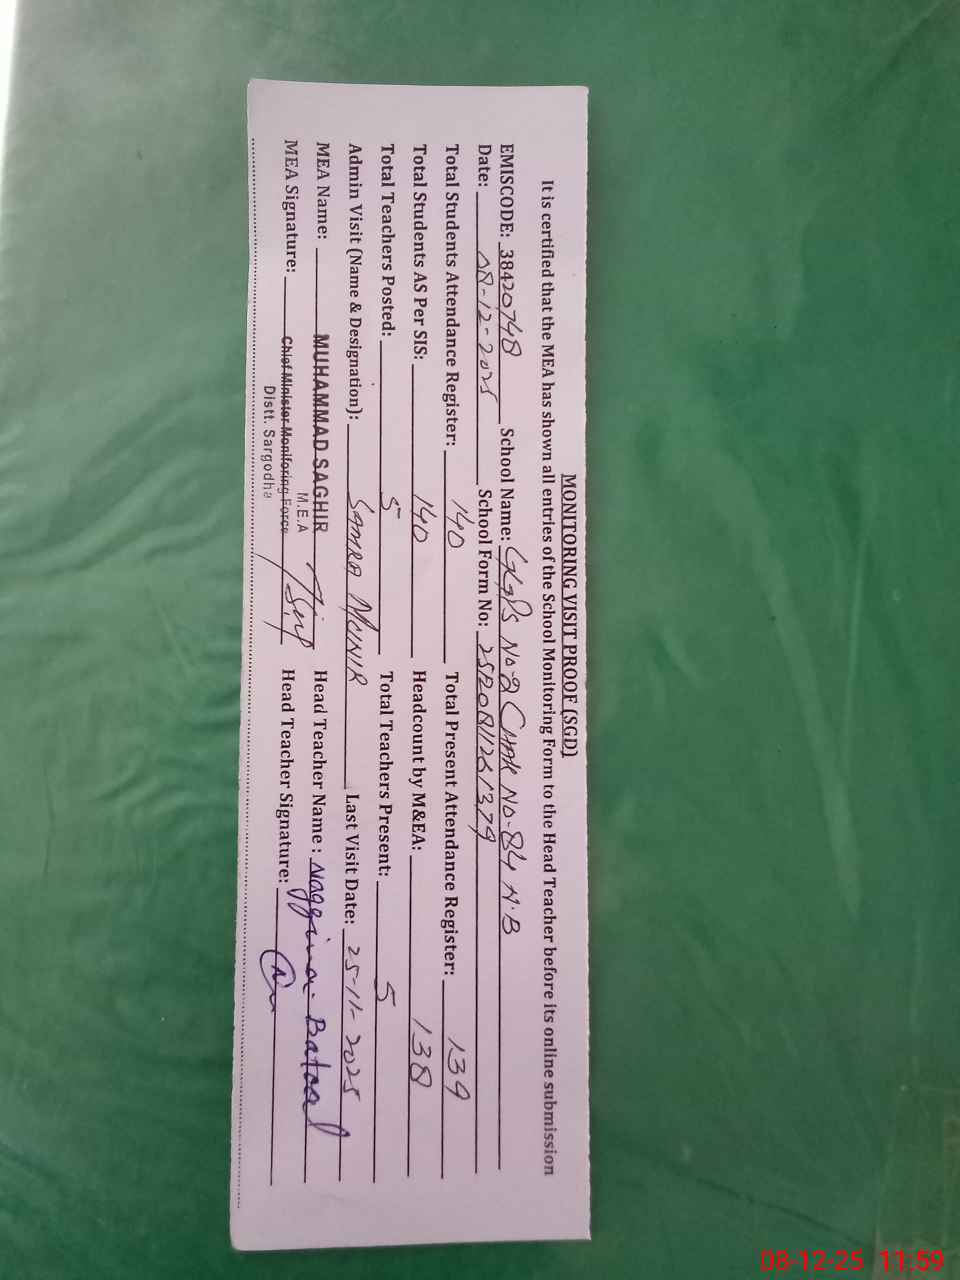 MONITORING VISIT PROOF (SGD)
It is certified that the MEA has shown all entries of the School Monitoring Form to the Head Teacher before its online submission
EMISCODE: 38420748 School Name: GGPS No-2 Chak No-84 N.B
Date: 08-12-2025 School Form No:
Total Students Attendance Register: 140 Total Present Attendance Register: 139
Total Students AS Per SIS: 140 Headcount by M&EA: 138
Total Teachers Posted: 5 Total Teachers Present: 5
Admin Visit (Name & Designation): Samra Munir Last Visit Date: 25-11-2025
MEA Name: MUHAMMAD SAGHIR Head Teacher Name: Naggina Batool
M.E.A
MEA Signature: Chief Minister Monitoring Force Head Teacher Signature:
Distt. Sargodha
08-12-25 11:59